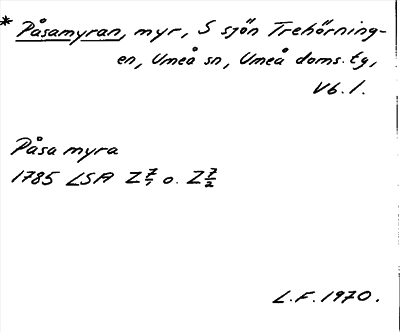 * Påsamyran, myr, S sjön Trehörning-
en, Umeå sn, Umeå doms. tg,
Vb. l.
Påsa myra
1785 LSA Z 7/1 o. Z 7/2
L.F. 1970.